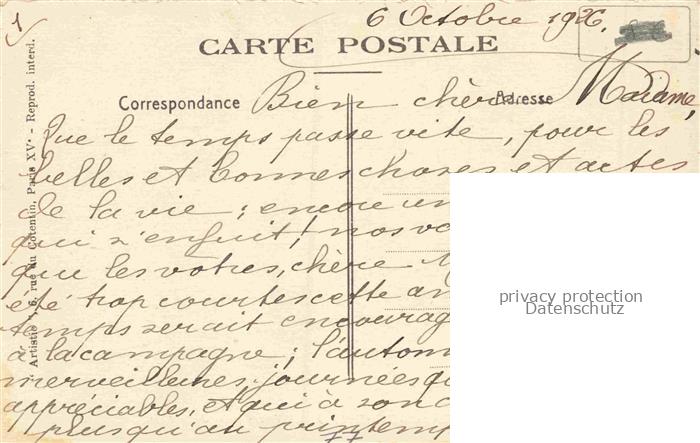 1
6 Octobre 1926.
CARTE POSTALE
Correspondance Adresse
Bien chère Madame,
Que le temps passe vite, pour les
belles et bonnes choses et actes
de la vie ; encore un
qui s'enfuit ! nos va
que les vôtres, chère
été trop courtes cette an
temps serait encourag
à la campagne ; l'autom
merveilleuses journées qu
appréciables, et qui à son
plus qu'au printemp
Artistic , 6, rue du Cotentin, Paris XVe - Reprod. interd.
privacy protection
Datenschutz